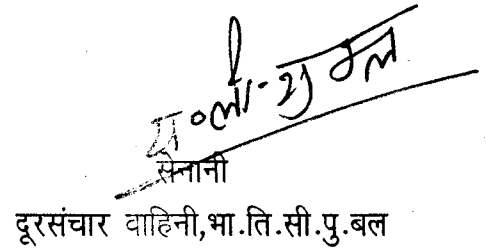 सेनानी
दूरसंचार वाहिनी,भा.ति.सी.पु.बल